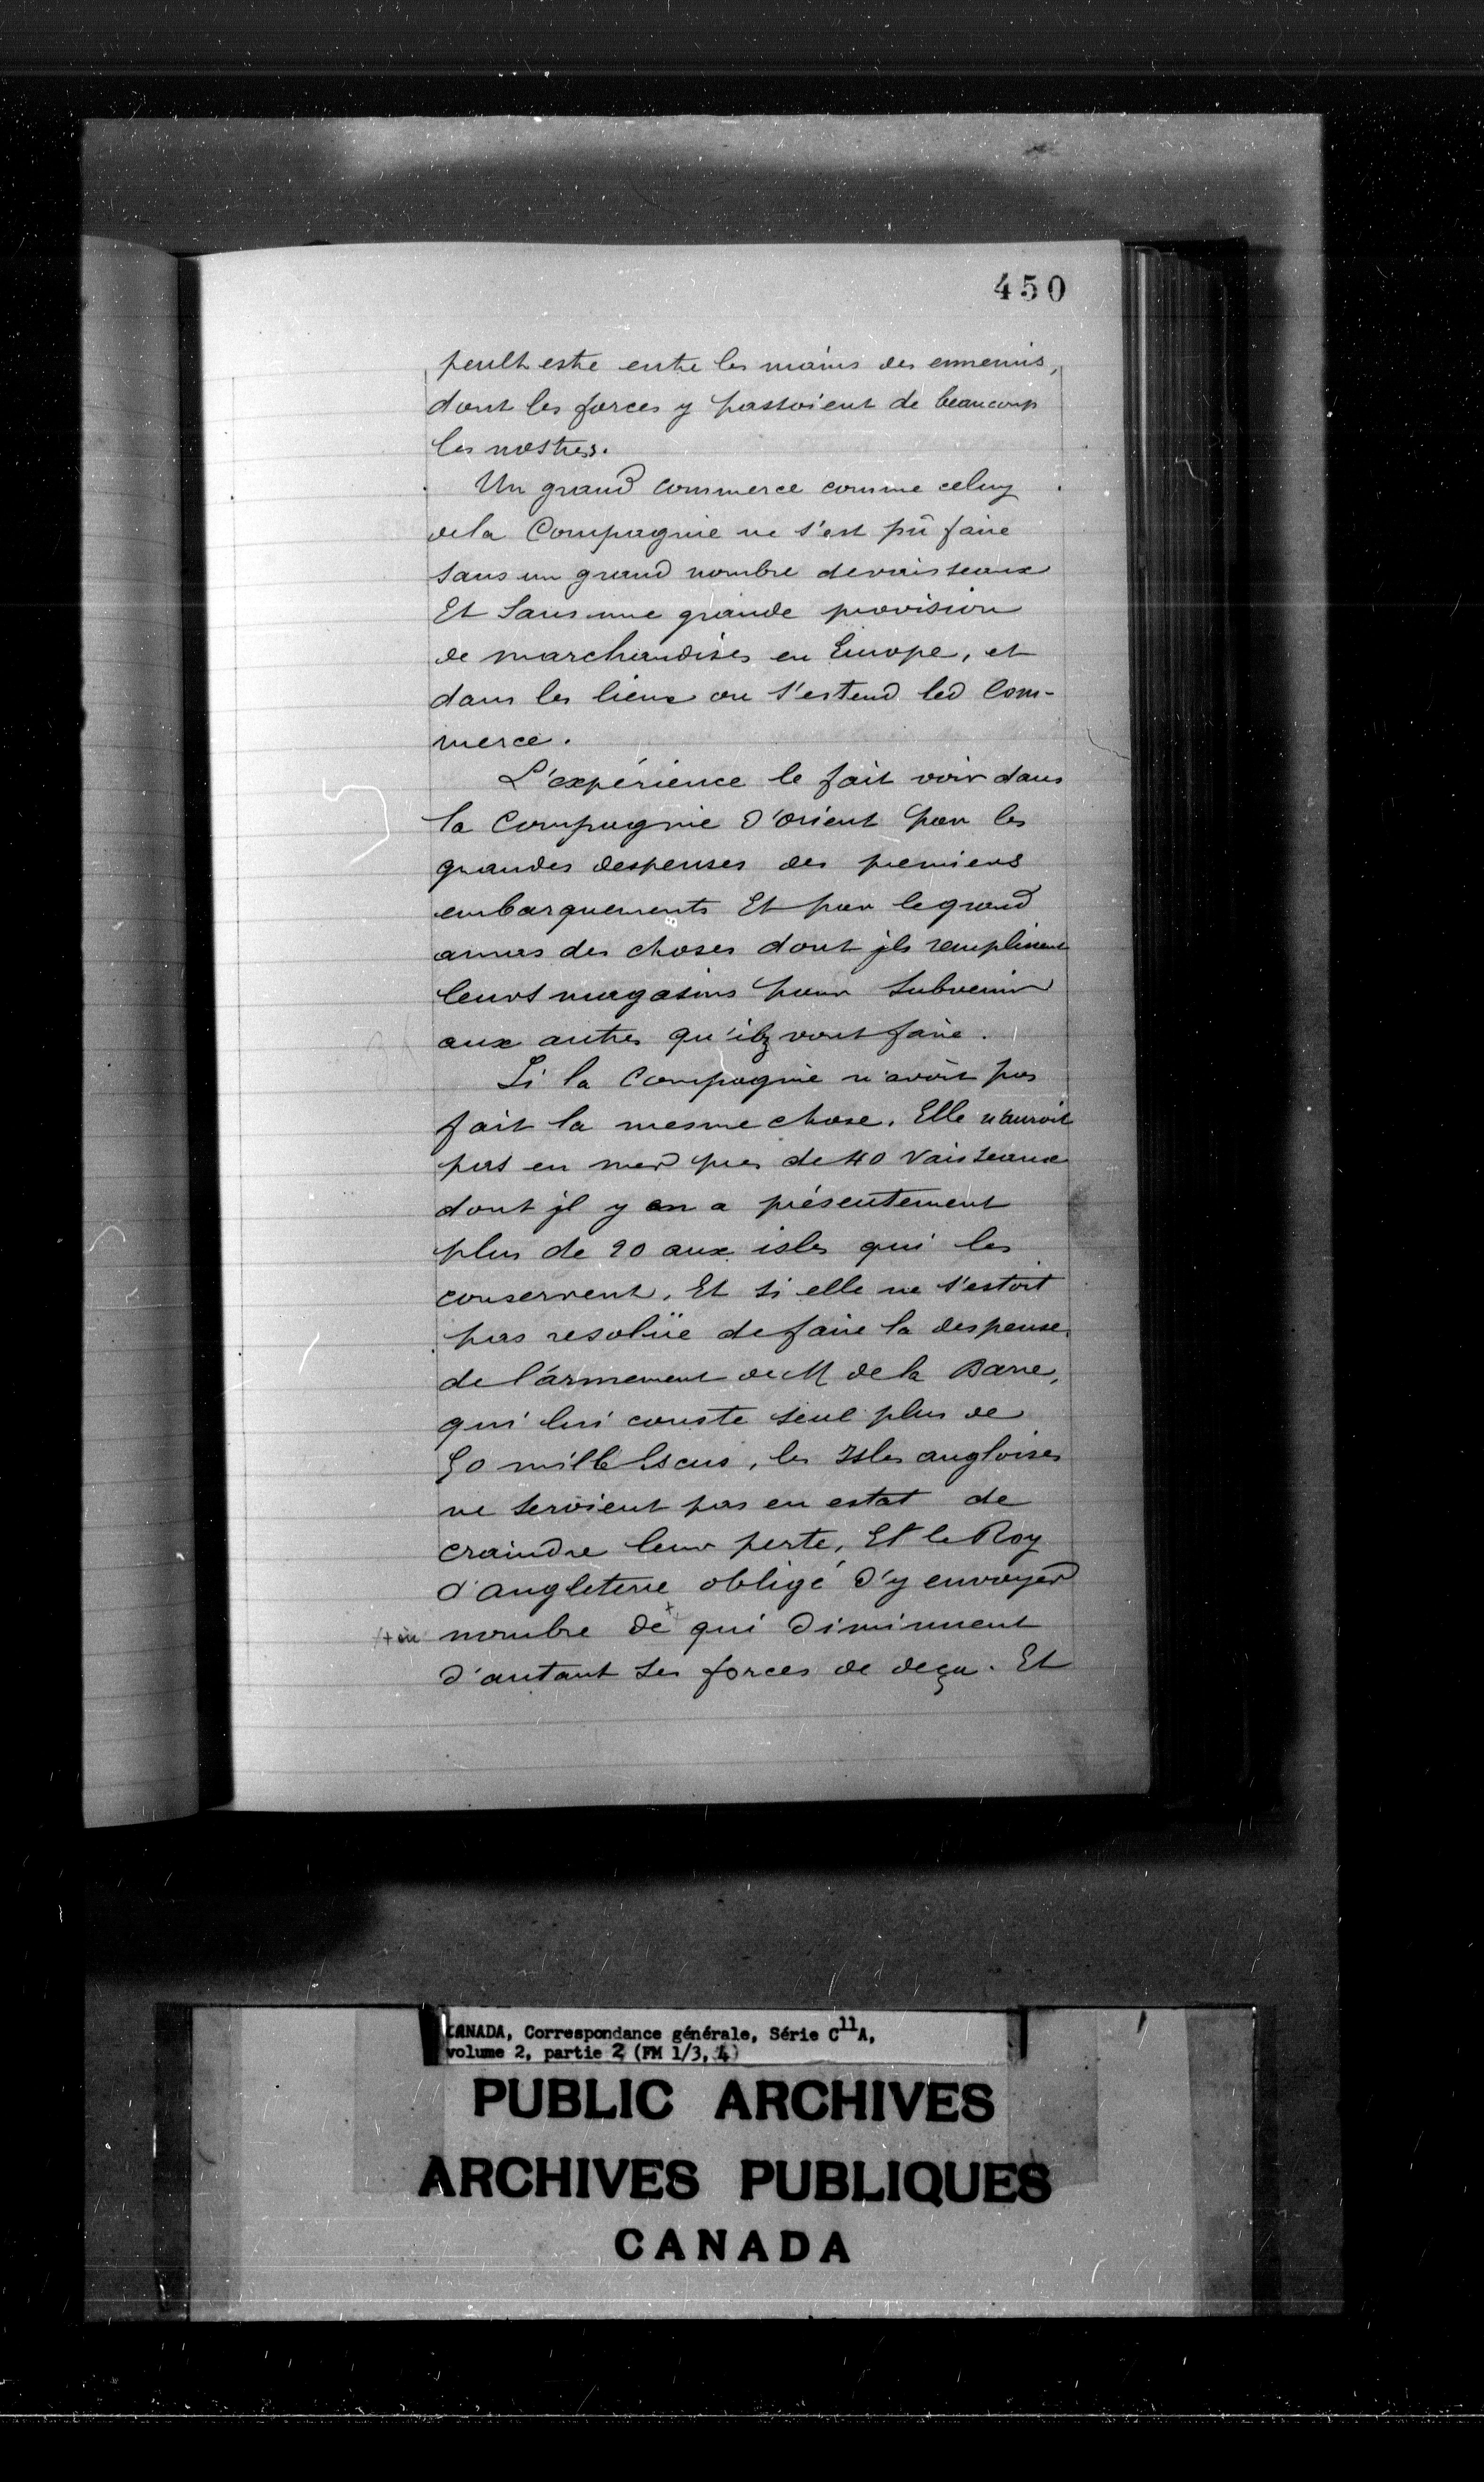 450
peult estre entre les mains des ennemis,
dont les forces y passoient de beaucoup
les nostres.
Un grand commerce comme celuy
dela Compagnie ne s'est pû faire
sans un grand nombre devaisseaux
Et Sans une grande provision
de marchandises en Europe, et
dans les lieux ou s'estend led Com-
merce.
L'expérience le fait voir dans
la Compagnie d'orient par les
grandes despenses des premiers
embarquements Et par legrand
amas des choses dont jls remplissent
leurs magasins pour Subvenir
aux autres qu'ilz vont faire.
Si la Compagnie n'avoit pas
fait la mesme chose, Elle n'auroit
pas en mer pres de 40 Vaisseaux
dont jl y en a présentement
plus de 20 aux isles qui les
conservent, Et si elle ne s'estoit
pas resolüe defaire la despense
de l'armement de M de la Barre,
qui lui couste seul plus de
50 mille Escus, les Isles angloises
ne seroient pas en estat de
craindre leur perte, Et le Roy
d'angleterre obligé d'y envoyer
nombre de + qui diminuent
d'autant ses forces de deça. Et
CANADA, Correspondance générale, Série C11A,
volume 2, partie 2 (FM 1/3, 4)
PUBLIC ARCHIVES
ARCHIVES PUBLIQUES
CANADA